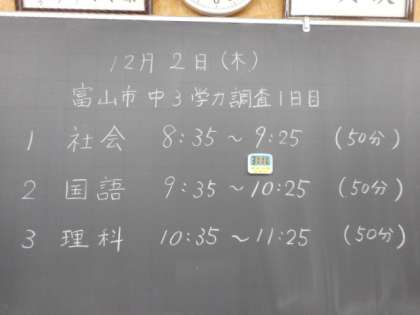 12月 2日(木)
富山市 中3学力調査1日目
1 社会 8:35 ~ 9:25 (50分)
2 国語 9:35 ~ 10:25 (50分)
3 理科 10:35 ~ 11:25 (50分)